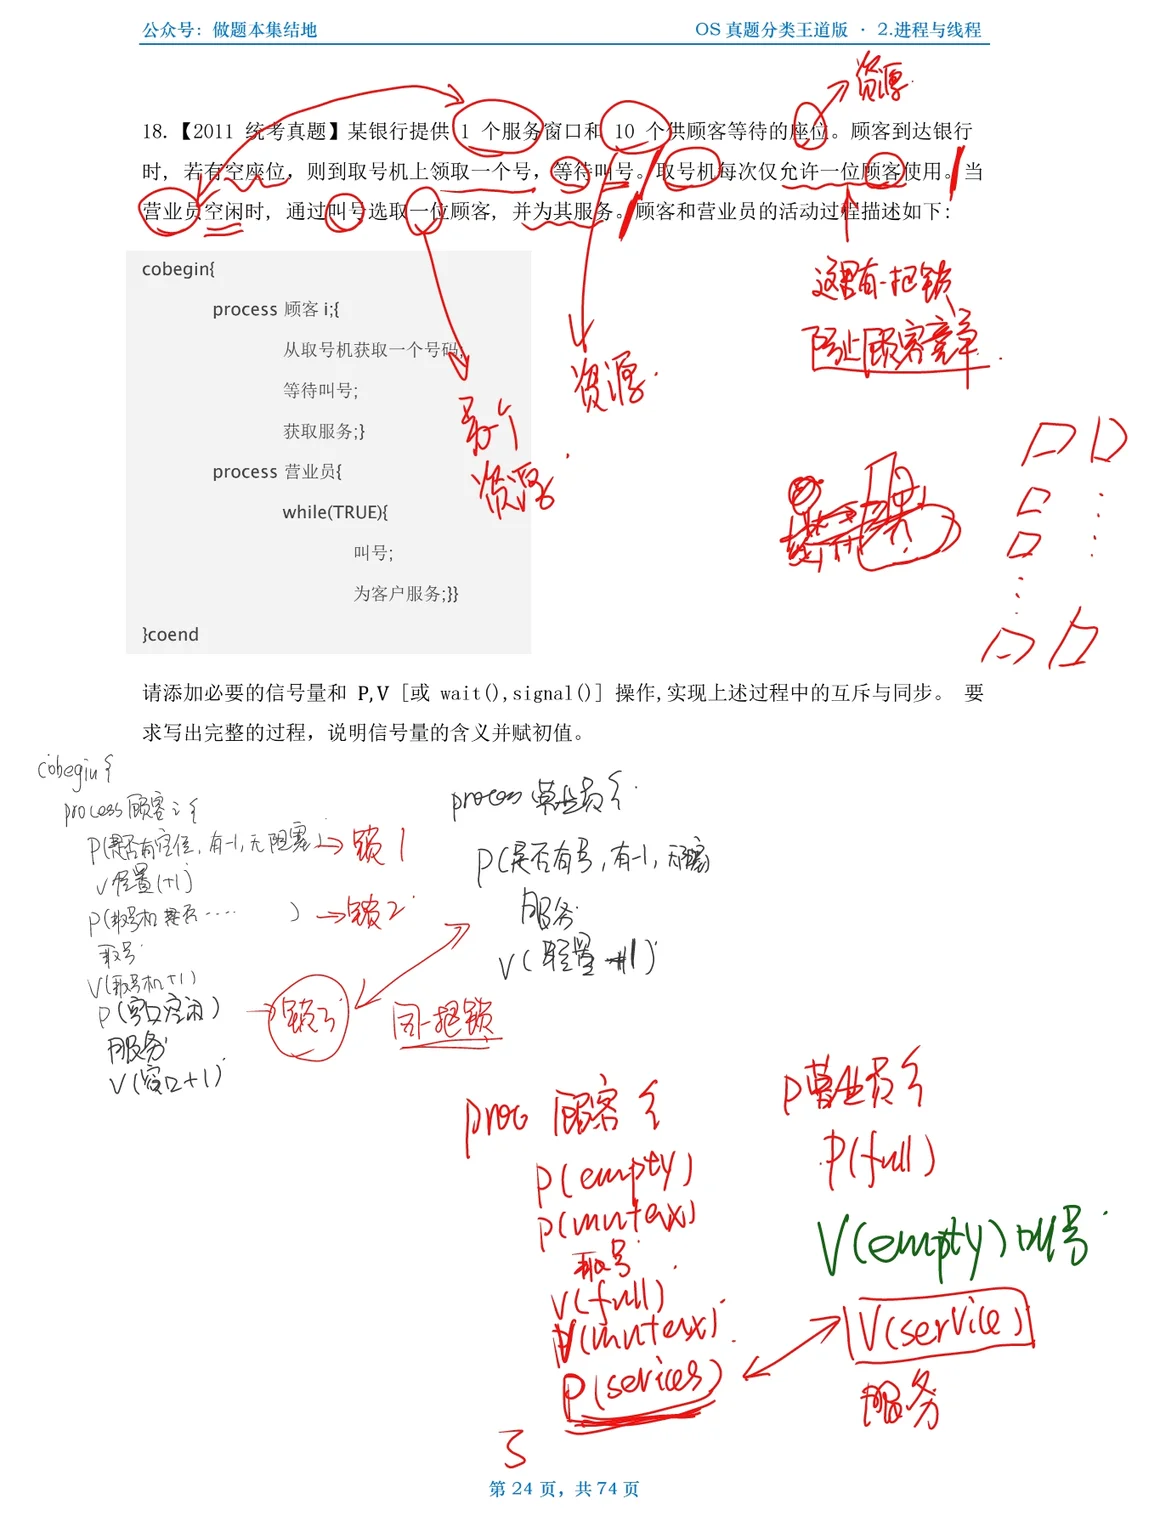 公众号：做题本集结地
OS 真题分类王道版 · 2.进程与线程
资源
18.【2011 统考真题】某银行提供 1 个服务窗口和 10 个供顾客等待的座位。顾客到达银行
时, 若有空座位, 则到取号机上领取一个号, 等待叫号。取号机每次仅允许一位顾客使用。当
营业员空闲时, 通过叫号选取一位顾客, 并为其服务。顾客和营业员的活动过程描述如下:
这里有一把锁
阻止顾客竞争
cobegin{
process 顾客 i;{
从取号机获取一个号码;
等待叫号;
获取服务;}
process 营业员{
while(TRUE){
叫号;
为客户服务;}}
}coend
资源
资源
请添加必要的信号量和 P,V [或 wait(),signal()] 操作,实现上述过程中的互斥与同步。 要
求写出完整的过程, 说明信号量的含义并赋初值。
cobegin{
process 顾客 i {
P(是否有空位, 有-1, 无阻塞)
→ 锁1
V 位置(+1)
P(取号机是否····)
→ 锁2
取号
V(取号机+1)
P(窗口空闲)
→ 锁3
同一把锁
服务
V(窗口+1)
process 营业员{
P(是否有号, 有-1, 无阻塞)
服务
proc 顾客 {
P(empty)
P(mutex)
取号
V(full)
V(mutex)
P(serices)
}
P营业员{
P(full)
V(empty) 叫号
V(service)
服务
第 24 页，共 74 页